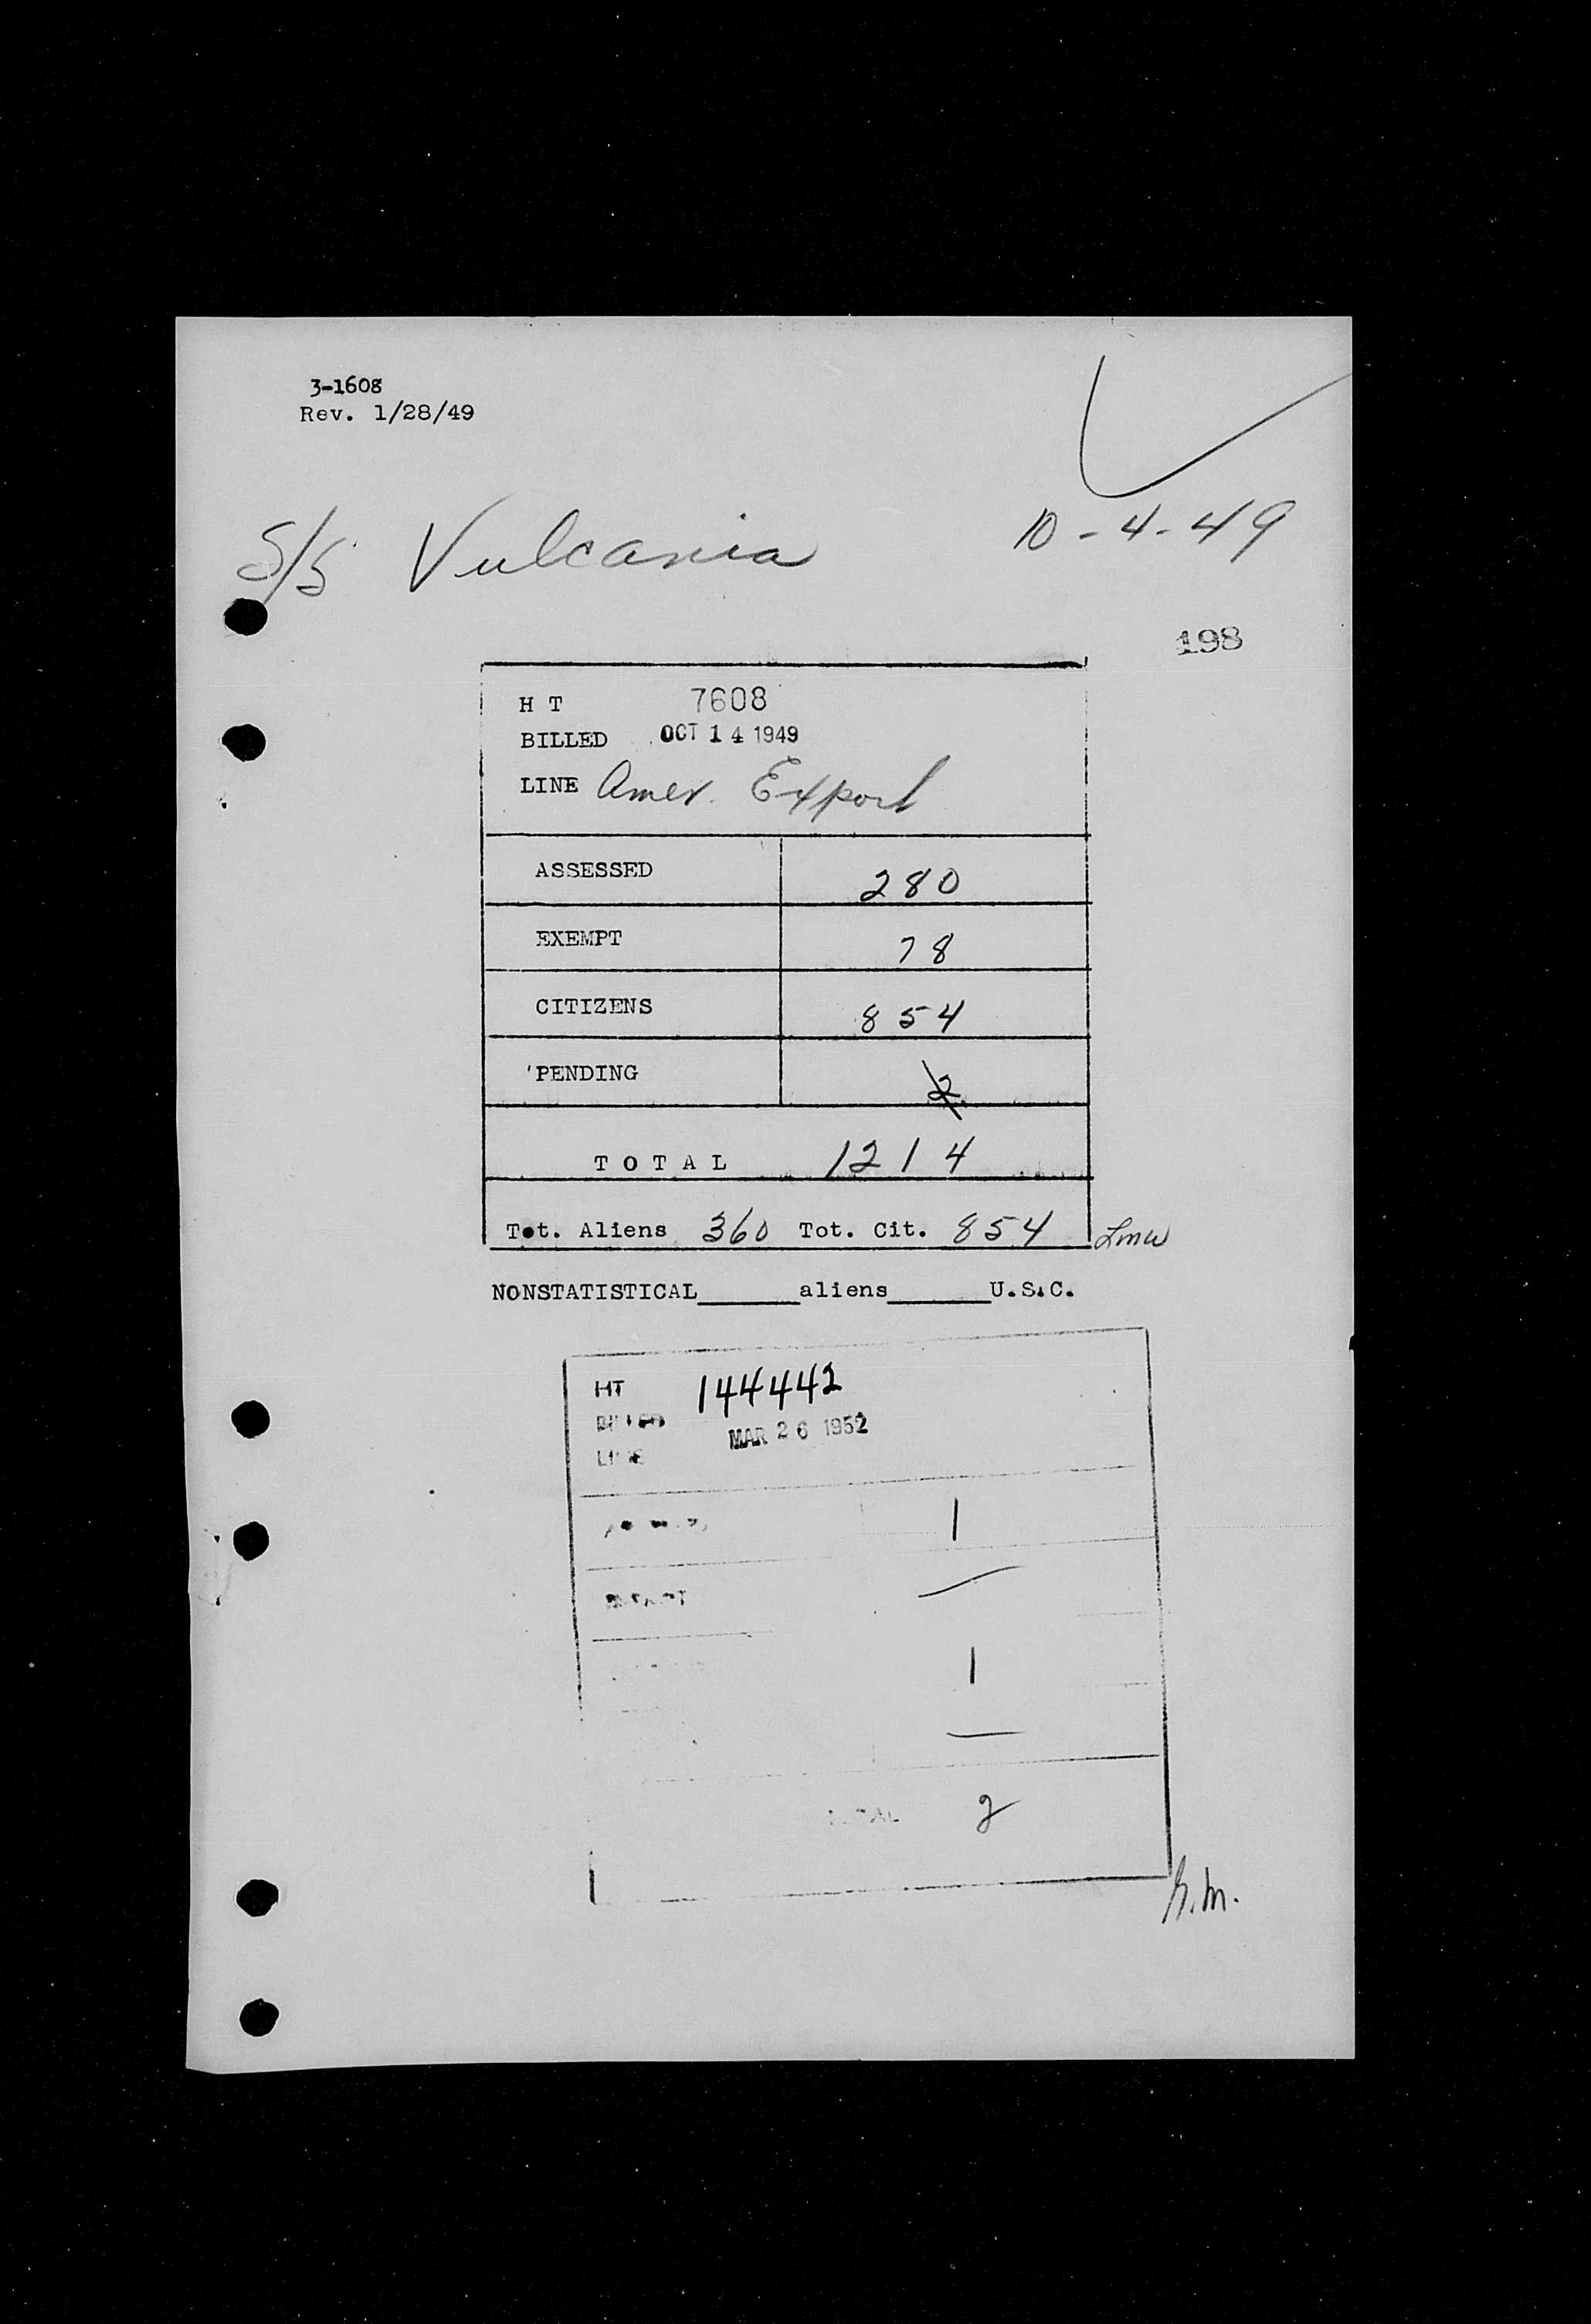 3-1608
Rev. 1/28/49
S/S Vulcania 10-4-49
198
H T 7608
BILLED OCT 14 1949
LINE Amer. Export
ASSESSED 280
EXEMPT 78
CITIZENS 854
PENDING 2
TOTAL 1214
Tot. Aliens 360 Tot. Cit. 854 Lmw
NONSTATISTICAL______aliens______U.S.C.
HT 144442
MAR 26 1952
LINE
1
1
TOTAL 2